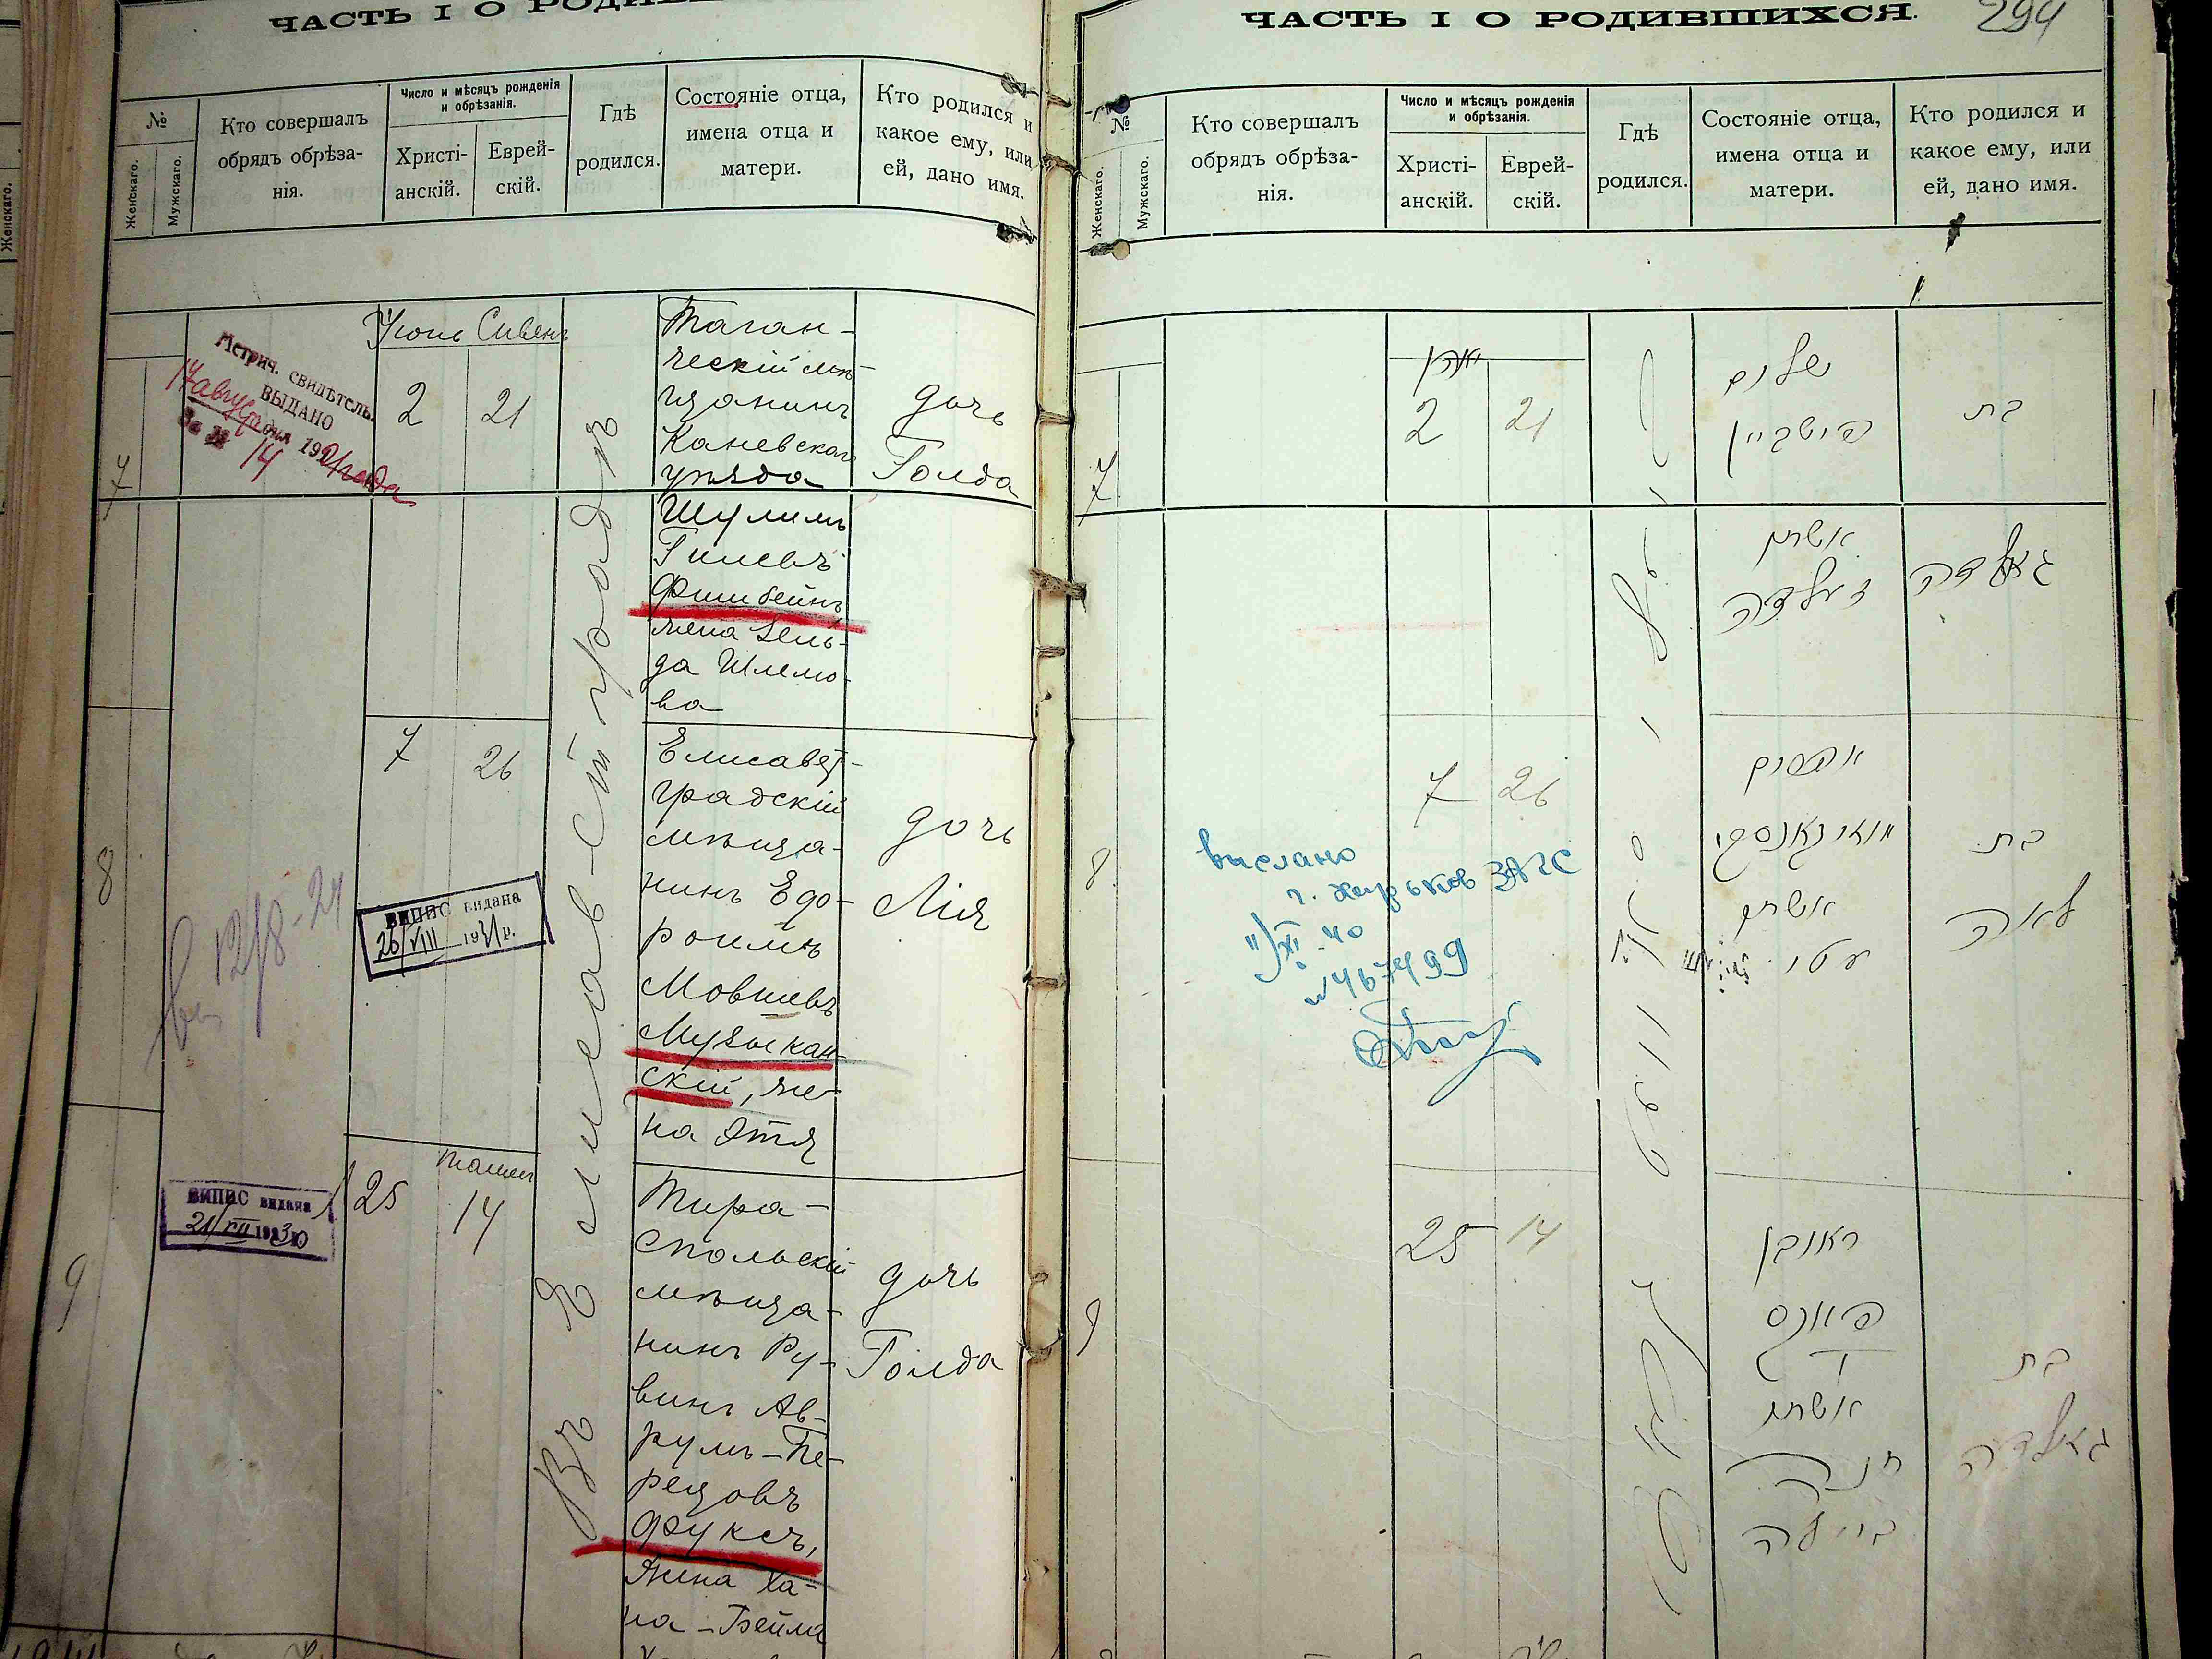 ЧАСТЬ I О
№
Женскаго.
Мужскаго.
Кто совершалъ
обрядъ обрѣза-
нія.
Число и мѣсяцъ рожденія
и обрѣзанія.
Христі-
анскій.
Еврей-
скій.
Гдѣ
родился.
Состояніе отца,
имена отца и
матери.
Кто родился и
какое ему, или
ей, дано имя.
7
Метрич. свидѣтель.
ВЫДАНО
17 августа
14
Іюнь Сивенъ
2
21
Въ Елисав-
Таган-
ческій мѣ-
щанинъ
Каневскаго
уѣзда
Шулимъ
Гилевъ
Фишбейнъ
жена Зель-
да Шлемо-
ва
дочь
Голда
8
7
26
ВИПИС видана
26/VIII 1931 р.
Елисавет-
градскій
мѣща-
нинъ Ефо-
роимъ
Мовшевъ
Музыкан-
скій, же-
на Этя
дочь
Лія
9
ВИПИС видана
21/VII 1930
25
14
Тира-
спольскій
мѣща-
нинъ Ру-
винъ Ав-
румъ-Пе-
рецовъ
Фуксъ,
Жена Ха-
на-Бейла
дочь
Голда
ЧАСТЬ I О РОДИВШИХСЯ.
294
№
Женскаго.
Мужскаго.
Кто совершалъ
обрядъ обрѣза-
нія.
Число и мѣсяцъ рожденія
и обрѣзанія.
Христі-
анскій.
Еврей-
скій.
Гдѣ
родился.
Состояніе отца,
имена отца и
матери.
Кто родился и
какое ему, или
ей, дано имя.
7
2
21
שלום
פישביין
אשתו
זעלדה
בת
גאלדה
8.
7
26
выслано
г. Харьков ЗАГС
11/XI 40
אפרים
אשתו
עטי
בת
לאה
9
25
14
ראובן
פוקס
אשתו
חנה
ביילה
בת
גאלדה